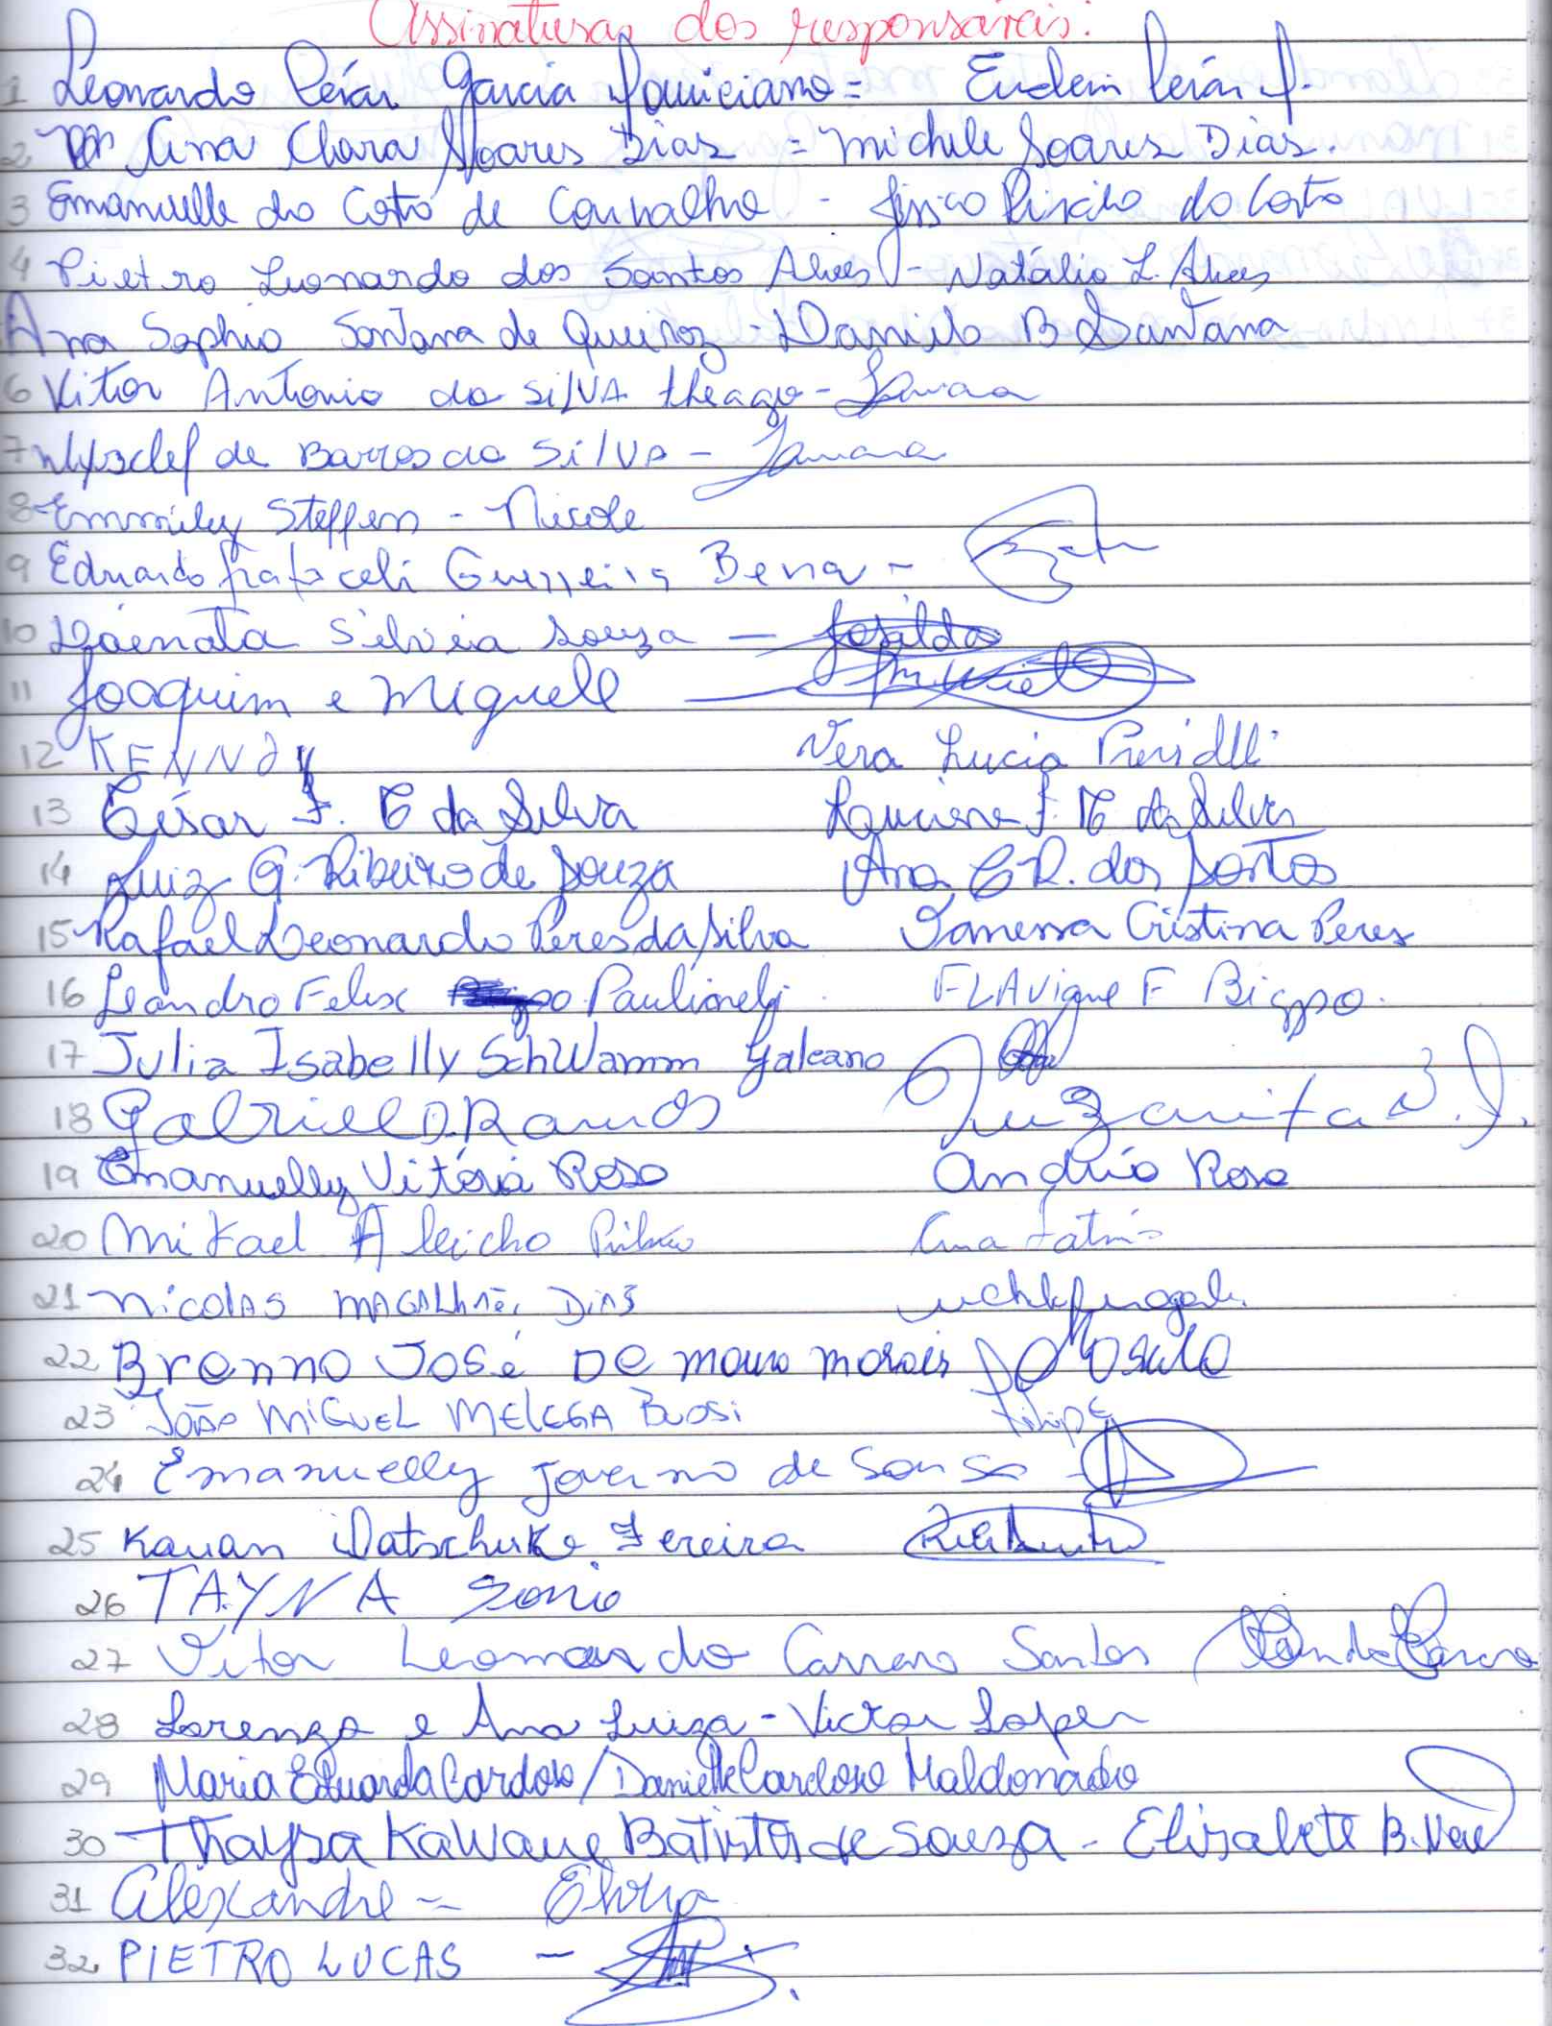 Assinaturas dos responsáveis:
1 Leonardo Perán Garcia = Perán
2 Ana Clara Soares Dias = Michele Soares Dias.
3 Emanuelle da Costa de Carvalho - Jéssica Priscila da Costa
4 Pietro Leonardo dos Santos Alves - Natália L. Alves
Ana Sophia Santana de Queiroz - Danilo B Santana
6 Vitor Antonio da SilVA theago -
7 de Barros da SilVA -
8 Emmily Steffen - Nicole
9 Eduardo Guerreira Bena -
10 Silvia Souza - Josilda
11 Joaquim e Miguell -
12 KENNDY Vera Lucia
13 César F. T da Silva Luciana F. T da Silva
14 Luiz G. Ribeiro de Souza Ana C R. dos Santos
15 Rafael Leonardo Peres da Silva Vanessa Cristina Peres
16 Leandro Felix FLAvigne F Bispo.
17 Julia Isabelly SchWamm Galeano
18 Gabriell D. Ramos
19 Emanuelly Vitória Rosa Angélia Rosa
20 Mikael Ana
21 Nicolas MAGALhães DiAS
22 Brenno José De Moura Morais
23 João MiGUEL MELEGA Buosi Felipe
24 Emanuelly de Sousa
25 Kauan Datschuke Fereira
26 TAYNA Sonia
27 Vitor Leomardo Carrara Santos
28 Lorenzo e Ana Luiza - Victor Lopes
29 Maria Eduarda Cardoso / Danielle Cardoso Maldonado
30 Thaysa Kawane Batista de Souza - Elisabete B.
31 Alexandre -
32 PIETRO LUCAS -